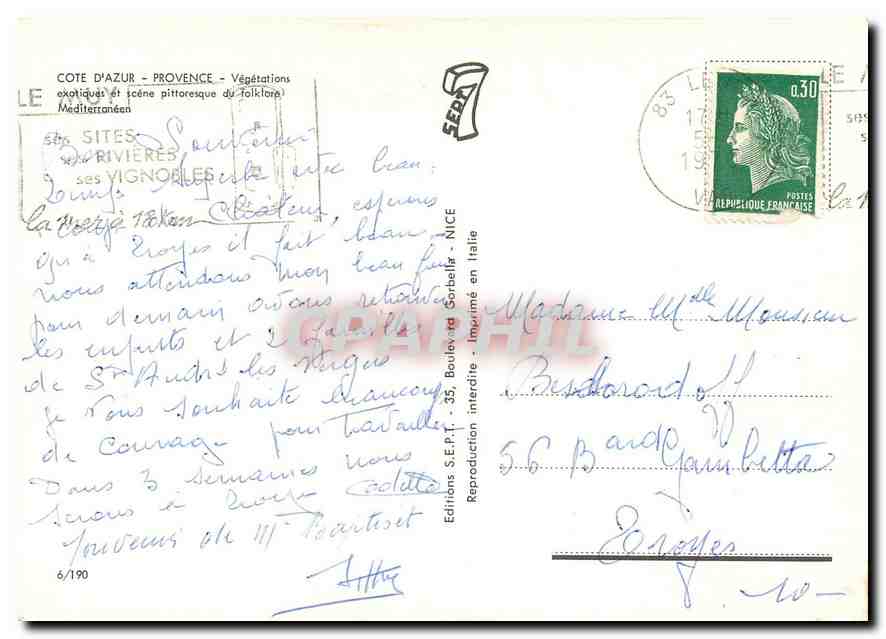 COTE D'AZUR - PROVENCE - Végétations
exotiques et scène pittoresque du folklore
Mediterranéen
LE MUY
ses SITES
ses RIVIÈRES
ses VIGNOBLES
la mer à 18 Km
Bon Souvenir
Temps superbe avec beau
Chaleur, esperons
qu'à Troyes il fait beau
nous attendons mon beau frère
pour demain avons retrouvé
les enfants et 2 familles
de St André les Vergers
je vous souhaite beaucoup
de Courage pour travailler
Dans 3 semaines nous
serons à Troyes
Souvenir de Mr
6/190
SEPT 7
Editions S.E.P.T. - 35, Boulevard Gorbella - NICE
Reproduction interdite - Imprimé en Italie
CPAPHIL
83 LE
17
VAR
0,30
POSTES
REPUBLIQUE FRANCAISE
LE
ses
la
Madame Mlle Monsieur
56 Bard Gambetta
Troyes
10